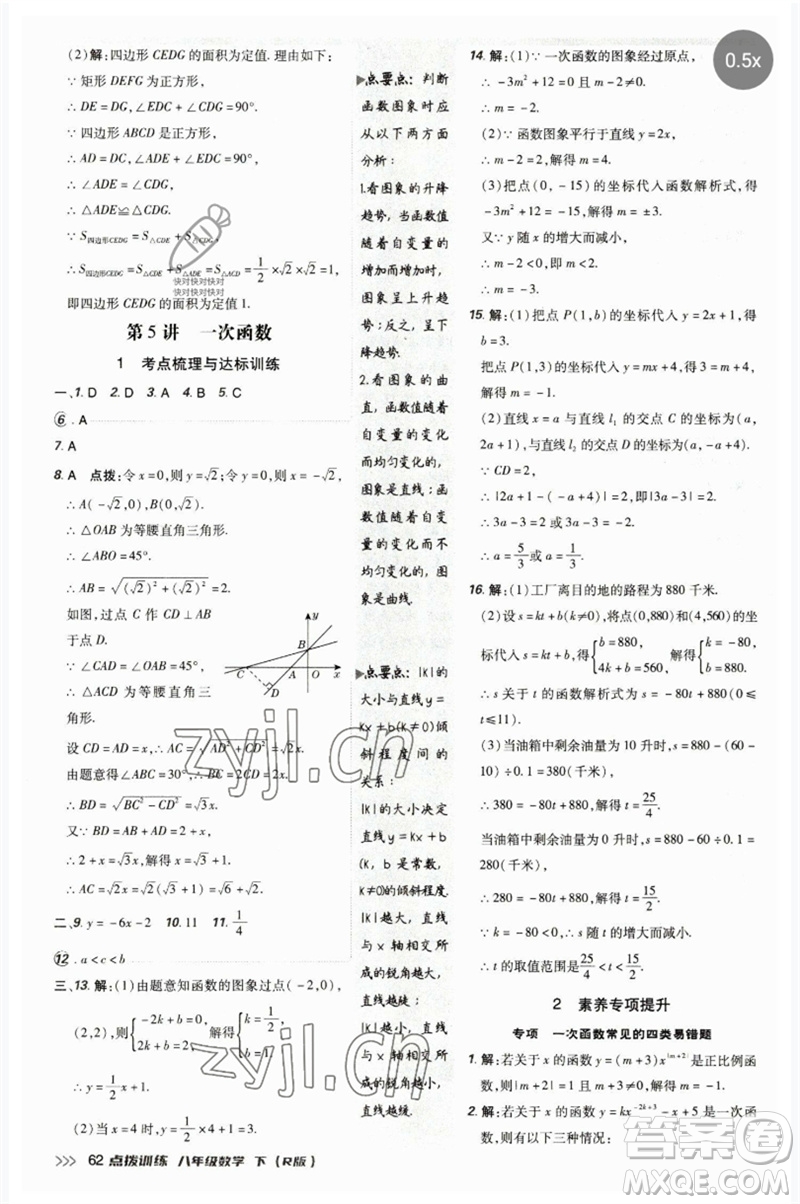 (2)解:四边形 CEDG 的面积为定值. 理由如下:
∵ 矩形 DEFG 为正方形,
∴ DE = DG,∠EDG = 90°,
∵ 四边形 ABCD 是正方形,
∴ AD = DC,∠ADC = 90°,
∴ ∠ADE = ∠CDG,
∴ △ADE≌△CDG,
∴ S四边形CEDG = S△CDE + S△CDG,
∴ S四边形CEDG = S△CDE + S△ADE = S△ACD = 1/2 × √2 × √2 = 1,
即四边形 CEDG 的面积为定值 1.
快对快对快对
快对快对快对
第 5 讲 一次函数
1 考点梳理与达标训练
一、1. D 2. D 3. A 4. B 5. C
⑥. A
7. A
8. A 点拨:令 x = 0,则 y = √2;令 y = 0,则 x = -√2,
∴ A(-√2,0),B(0,√2).
∴ △OAB 为等腰直角三角形.
∴ ∠ABO = 45°.
∴ AB = √((√2)² + (√2)²) = 2.
如图,过点 C 作 CD⊥AB
于点 D.
∵ ∠CAD = ∠OAB = 45°,
∴ △ACD 为等腰直角三
角形.
y
B
C A O x
D
设 CD = AD = x,∴ AC = √(AD² + CD²) = √2x.
由题意得∠ABC = 30°,∴ BC = 2CD = 2x.
∴ BD = √(BC² - CD²) = √3x.
又∵ BD = AB + AD = 2 + x,
∴ 2 + x = √3x,解得 x = √3 + 1.
∴ AC = √2x = √2(√3 + 1) = √6 + √2.
二、9. y = -6x - 2 10. 11 11. 1/4
⑫. a < c < b
三、13. 解:(1)由题意知函数的图象过点(-2,0),
(2,2),则{-2k + b = 0, 2k + b = 2, 解得{k = 1/2, b = 1.
∴ y = 1/2 x + 1.
(2)当 x = 4 时,y = 1/2 x + 1 = 1/2 × 4 + 1 = 3.
点要点:判断
函数图象时应
从以下两方面
分析:
1.看图象的升降
趋势,当函数值
随着自变量的
增加而增加时,
图象呈上升趋
势;反之,呈下
降趋势.
2.看图象的曲
直,函数值随着
自变量的变化
而均匀变化的,
图象是直线;函
数值随着自变
量的变化而不
均匀变化的,图
象是曲线.
点要点:|k|的
大小与直线y=
kx+b(k≠0)倾
斜程度间的
关系:
|k|的大小决定
直线y=kx+b
(k,b是常数,
k≠0)的倾斜程度.
|k|越大,直线
与x轴相交所
成的锐角越大,
直线越陡;
|k|越小,直线
与x轴相交所
成的锐角越小,
直线越缓.
0.5x
14. 解:(1)∵ 一次函数的图象经过原点,
∴ -3m² + 12 = 0 且 m - 2 ≠ 0.
∴ m = -2.
(2)∵ 函数图象平行于直线 y = 2x,
∴ m - 2 = 2,解得 m = 4.
(3)把点(0,-15)的坐标代入函数解析式,得
-3m² + 12 = -15,解得 m = ±3.
又∵ y 随 x 的增大而减小,
∴ m - 2 < 0,解得 m < 2.
∴ m = -3.
15. 解:(1)把点 P(1,b)的坐标代入 y = 2x + 1,得
b = 3.
把点 P(1,3)的坐标代入 y = mx + 4,得 m + 4 = 3,
∴ m = -1.
(2)直线 x = a 与直线 l₁ 的交点 C 的坐标为(a,
2a + 1),与直线 l₂ 的交点 D 的坐标为(a,-a + 4).
∵ CD = 2,
∴ |2a + 1 - (-a + 4)| = 2,即|3a - 3| = 2.
∴ 3a - 3 = 2 或 3a - 3 = -2.
∴ a = 5/3 或 a = 1/3.
16. 解:(1)工厂离目的地的路程为 880 千米.
(2)设 s = kt + b(k≠0),将点(0,880)和(4,560)的坐
标代入 s = kt + b,得{b = 880, 4k + b = 560, 解得{k = -80, b = 880.
∴ s 关于 t 的函数解析式为 s = -80t + 880(0≤
t≤11).
(3)当油箱中剩余油量为 10 升时,s = 880 - (60 -
10) ÷ 0.1 = 380(千米),
∴ 380 = -80t + 880,解得 t = 25/4.
当油箱中剩余油量为 0 升时,s = 880 - 60 ÷ 0.1 =
280(千米),
∴ 280 = -80t + 880,解得 t = 15/2.
∵ k = -80 < 0,∴ s 随 t 的增大而减小.
∴ t 的取值范围是25/4 < t < 15/2.
2 素养专项提升
专项 一次函数常见的四类易错题
1. 解:若关于 x 的函数 y = (m + 3)x^|m+2| 是正比例函
数,则|m + 2| = 1 且 m + 3 ≠ 0,解得 m = -1.
2. 解:若关于 x 的函数 y = kx^(-2k+3) - x + 5 是一次函
数,则有以下三种情况:
62 点拨训练 八年级数学 下(R版)
zyjl.cn
zyjl.cn
答案圈
MXQE.COM